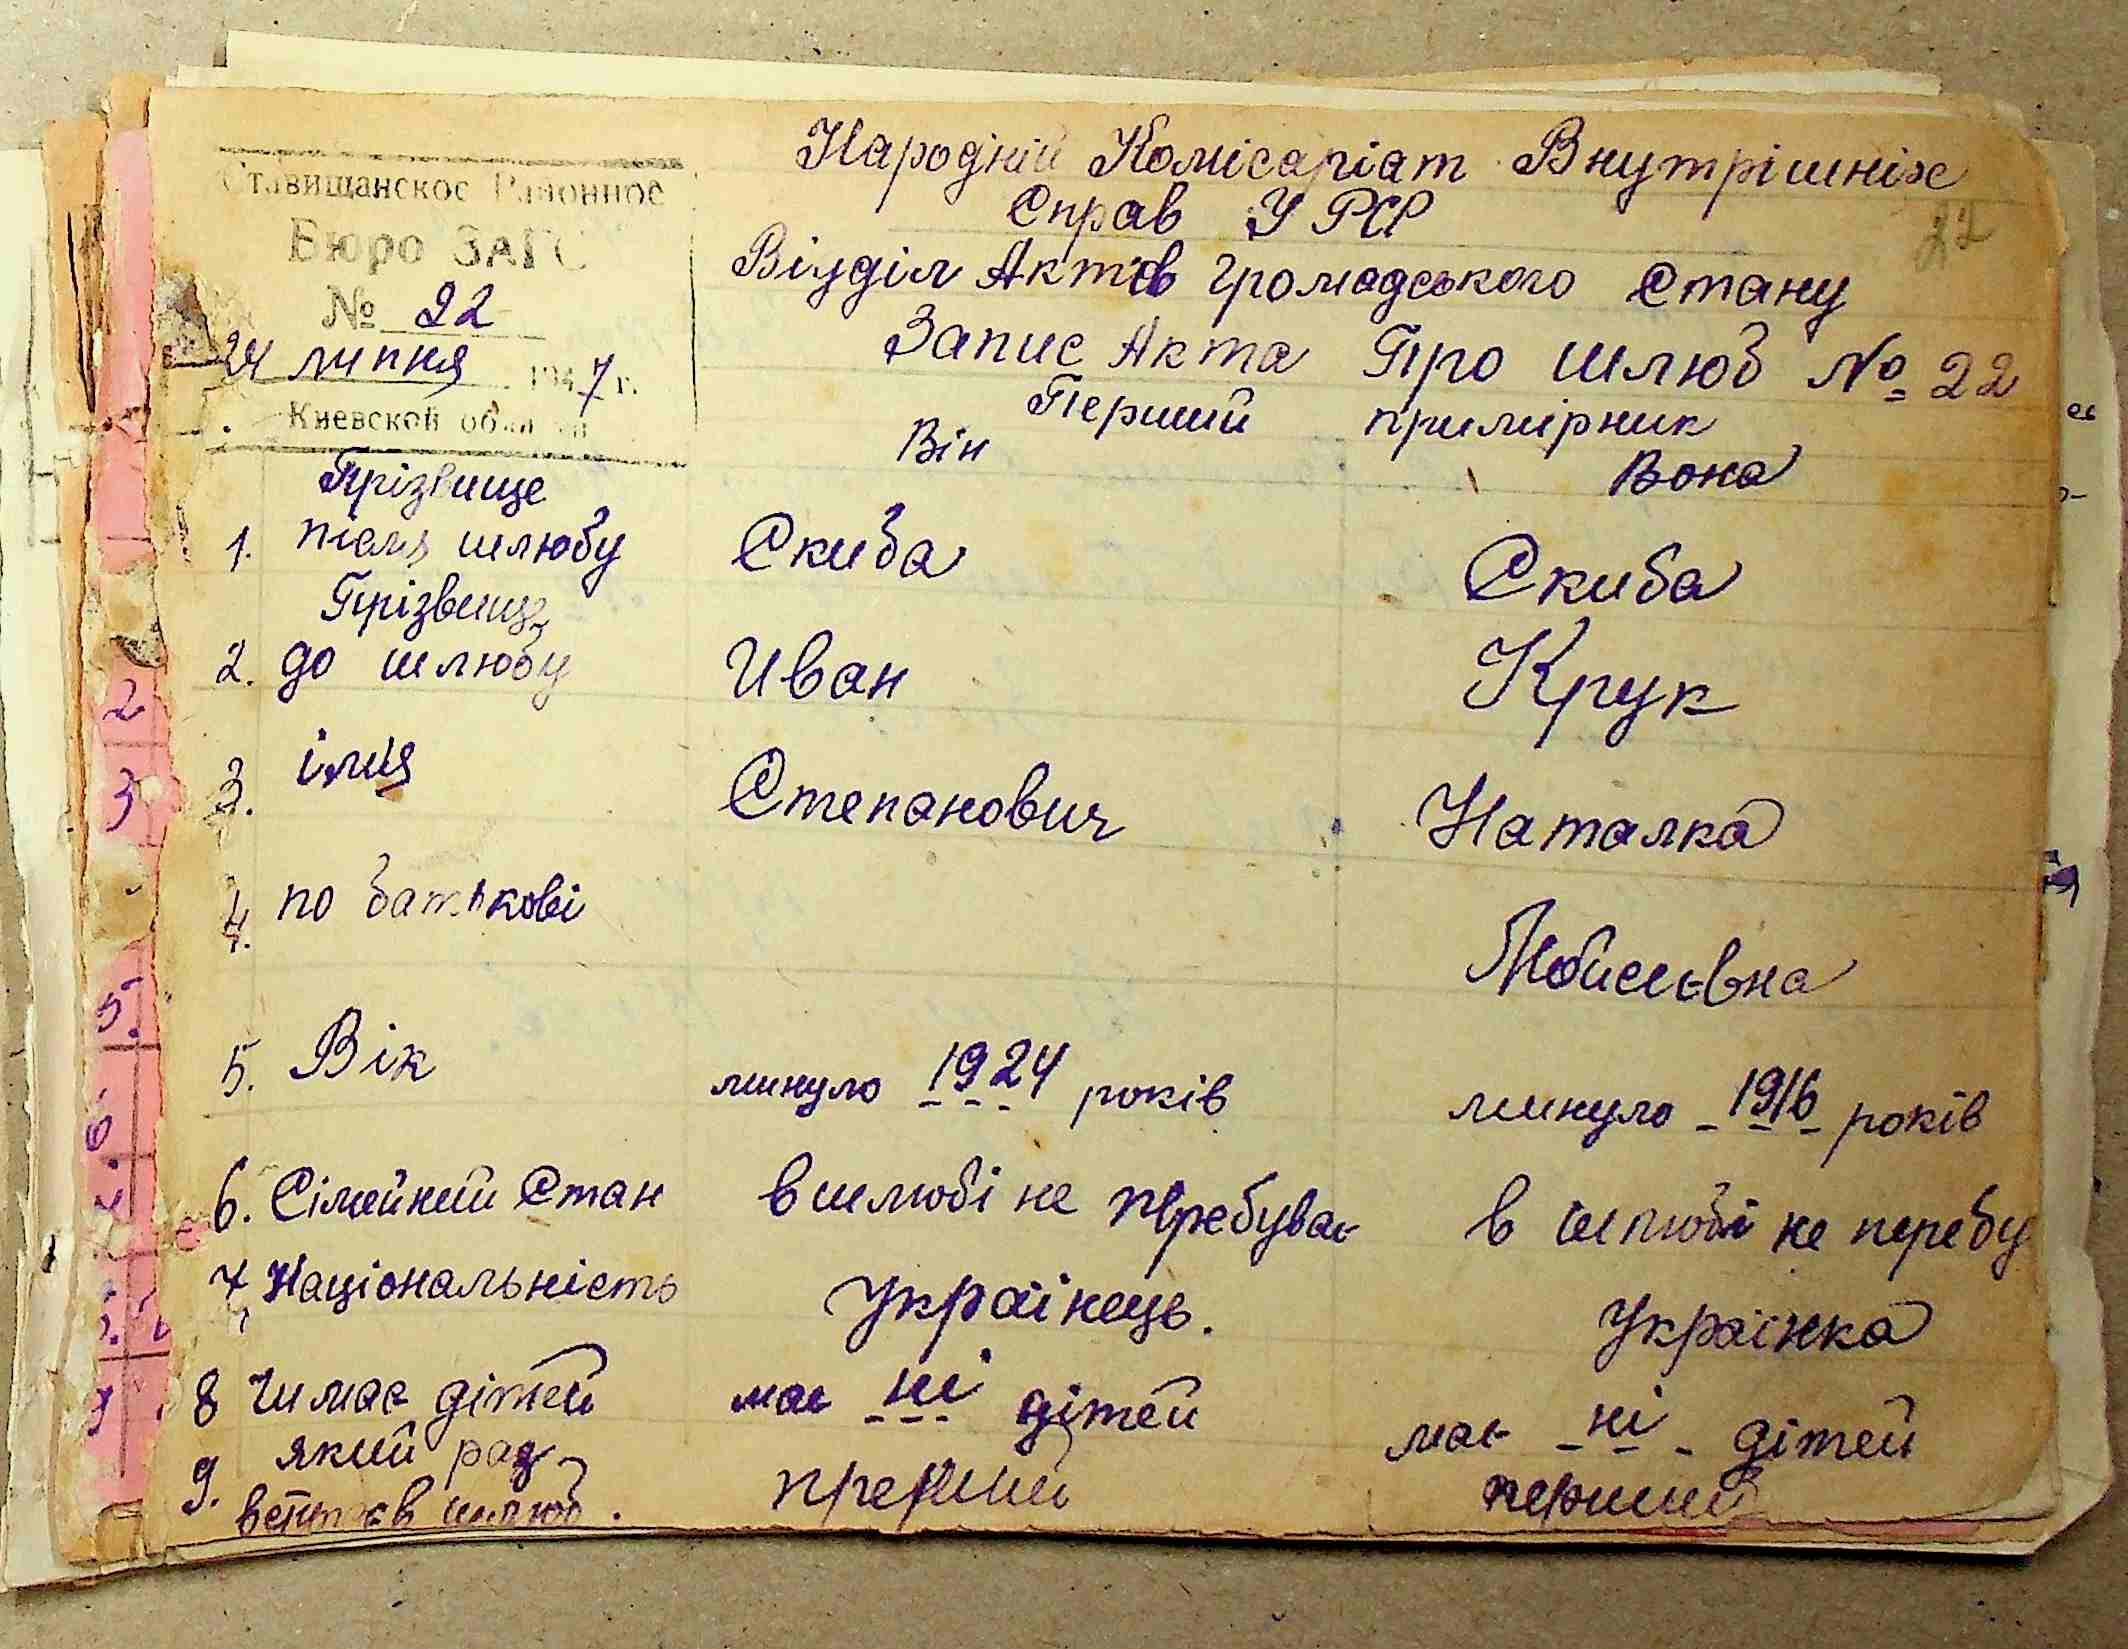 Ставищанское Районное
Бюро ЗАГС
№ 22
24 липня 1947 г.
Киевской области
Народній Комісаріат Внутрішніх
Справ УРСР
Відділ Актів Громадського Стану
22
Запис Акта Про шлюб № 22
Перший примірник
Він Вона
Прізвище
1. після шлюбу Скиба Скиба
Прізвище
2. до шлюбу Иван Крук
3. імия Степанович Наталка
4. по батькові Мойсеєвна
5. Вік минуло 1924 років минуло 1916 років
6. Сімейний Стан в шлюбі не перебуває в шлюбі не перебу
7 Національність Українець. Українка
8 Чи має дітей має ні дітей має ні дітей
9. який раз
вступає в шлюб. прерший перший
2
3
5.
6.